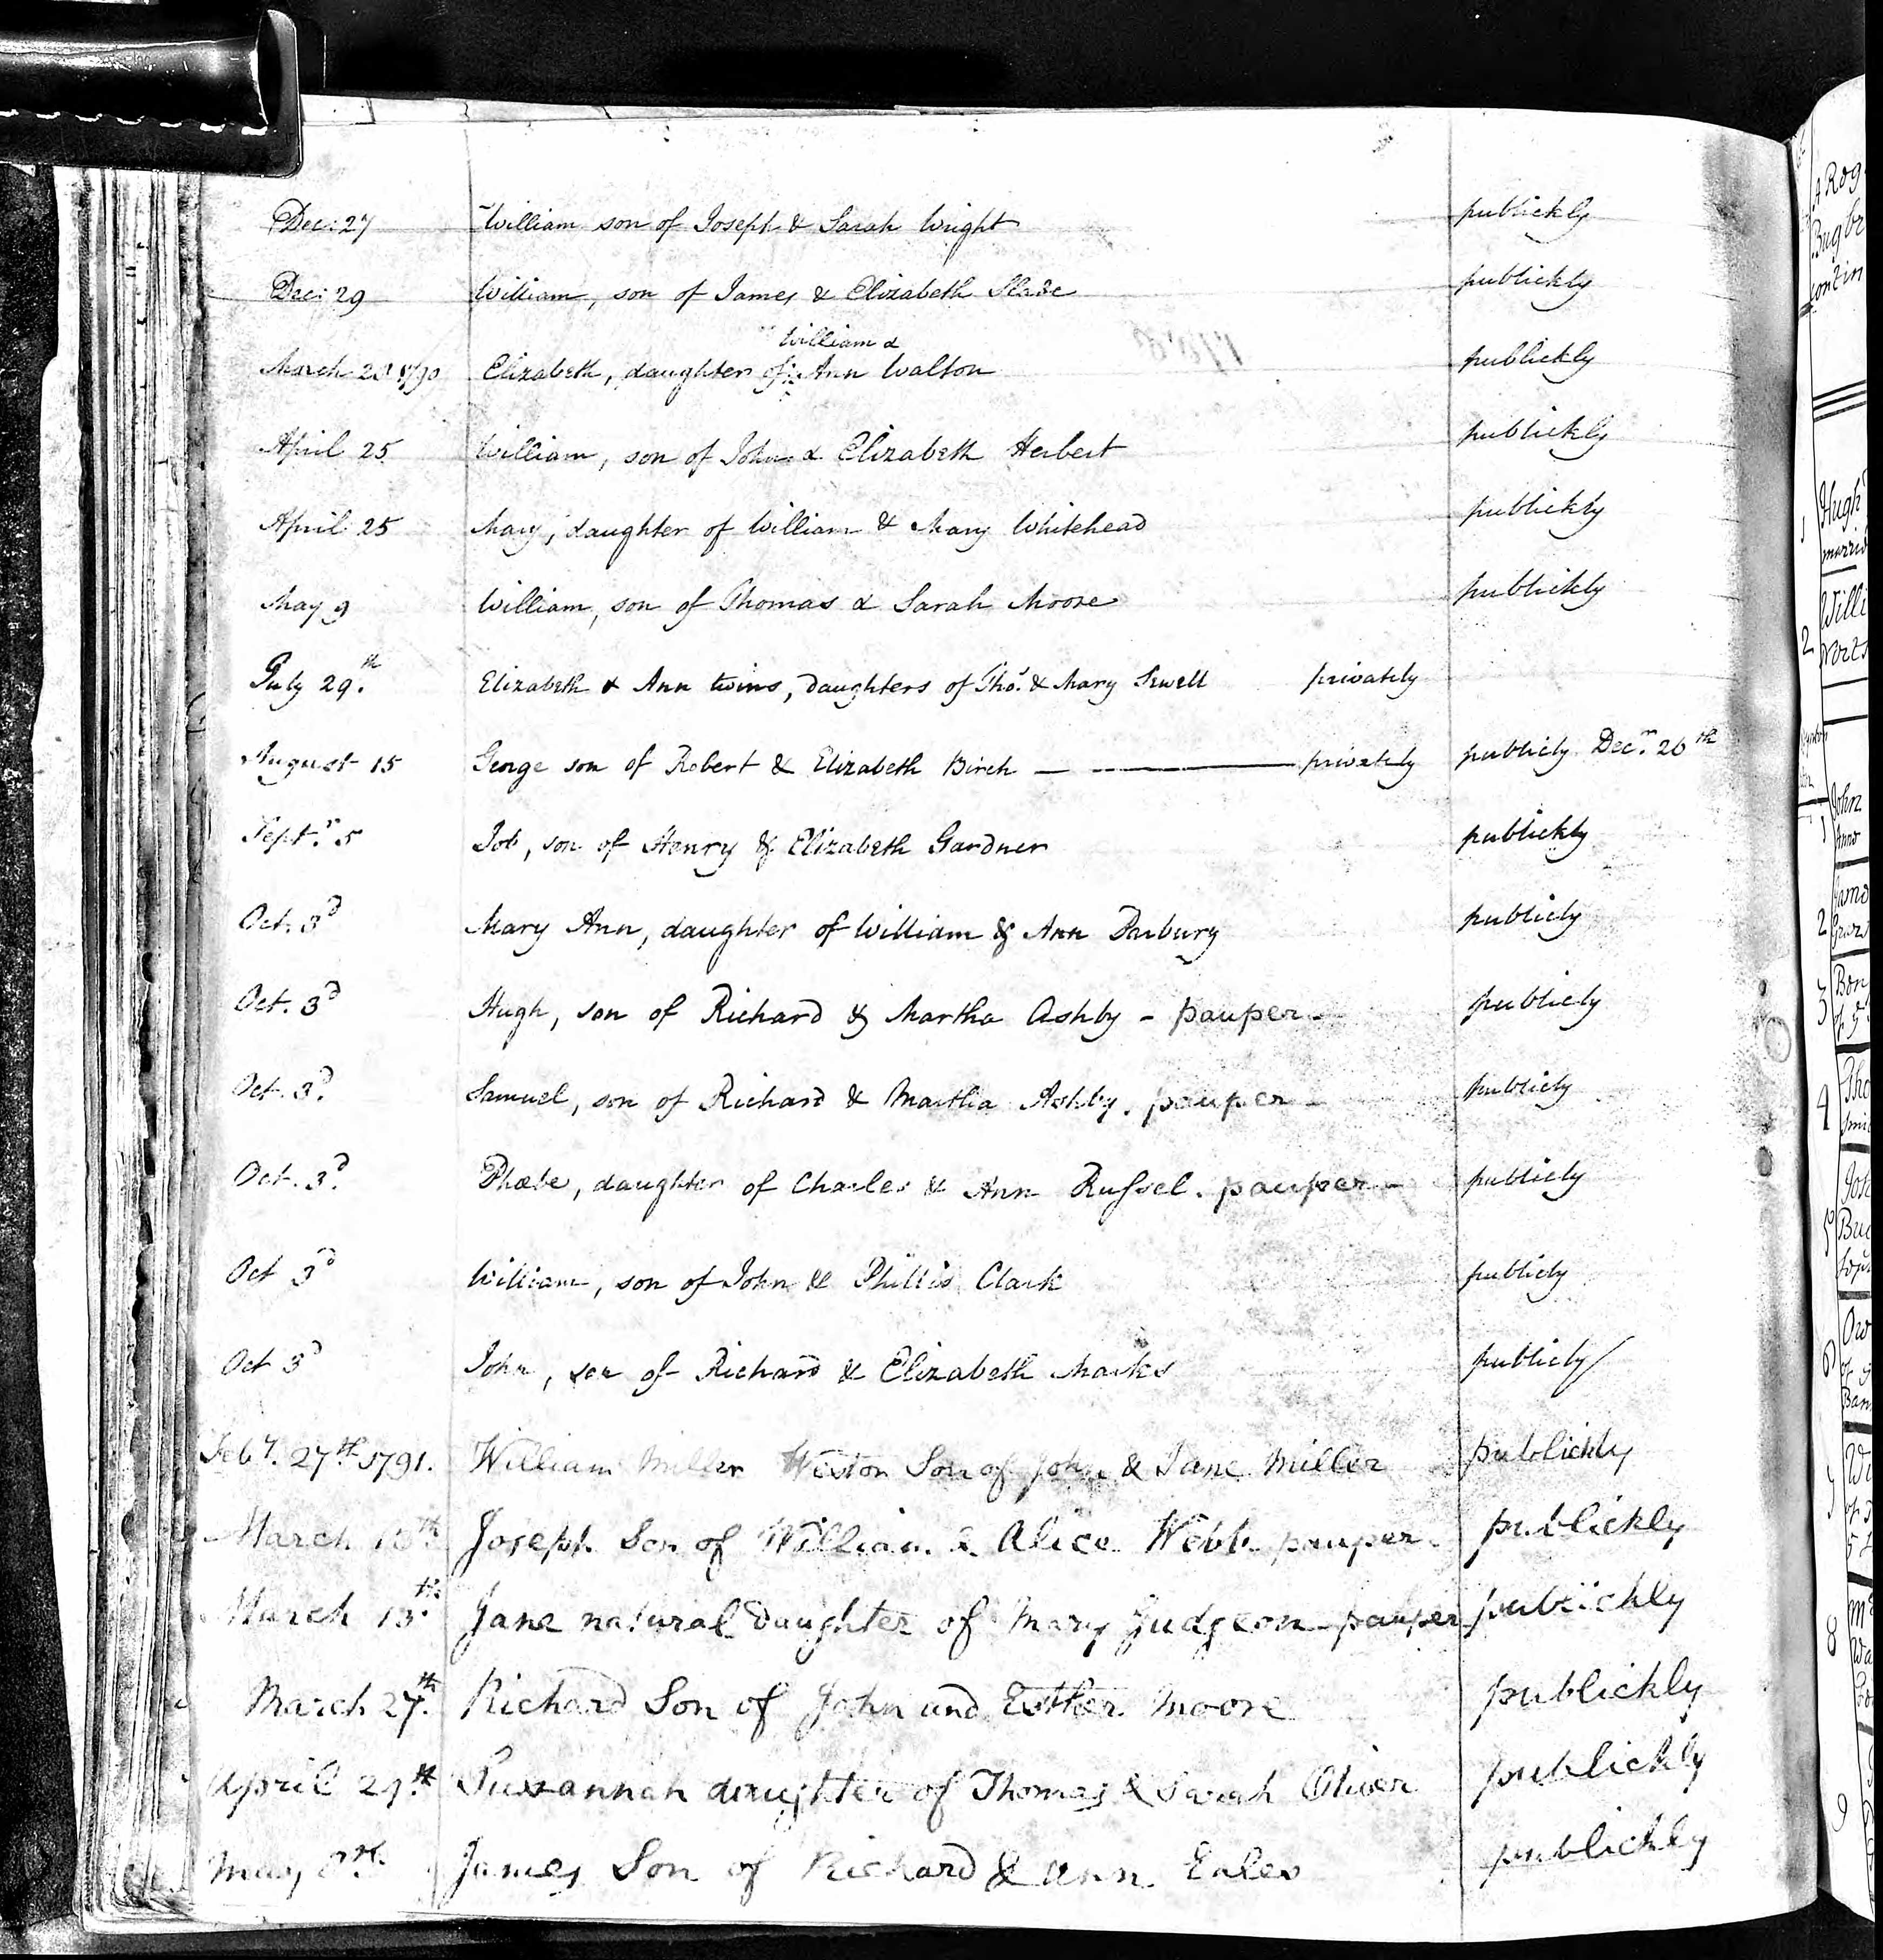 Dec: 27 William son of Joseph & Sarah Wright publickly
Dec: 29 William, son of James & Elizabeth Slade publickly
William &
March 28 1790 Elizabeth, daughter of Ann Walton publickly
April 25 William, son of John & Elizabeth Herbert publickly
April 25 Mary, daughter of William & Mary Whitehead publickly
May 9 William, son of Thomas & Sarah Moore publickly
July 29.th Elizabeth & Ann twins, daughters of Tho.s & Mary Sewell privately
August 15 George son of Robert & Elizabeth Birch — privately publicly Dec.r 26th
Sept.r 5 Job, son of Henry & Elizabeth Gardner publickly
Oct. 3d Mary Ann, daughter of William & Ann Darbury publicly
Oct. 3d Hugh, son of Richard & Martha Ashby - pauper - publicly
Oct. 3d. Samuel, son of Richard & Martha Ashby. pauper - publicly
Oct. 3d. Phœbe, daughter of Charles & Ann Russel. pauper - publicly
Oct 3d William, son of John & Phillis Clark publicly
Oct 3d John, son of Richard & Elizabeth Marks publicly
Feby. 27th 1791. William Miller Weston Son of John & Jane Miller publickly
March 13th Joseph Son of William & Alice Webb pauper. publickly
March 13th. Jane natural Daughter of Mary Gudgeon - pauper publickly
March 27th. Richard Son of John and Esther Moore publickly
April 29th Susannah daughter of Thomas & Sarah Oliver publickly
May 8th. James Son of Richard & Ann Eales publickly